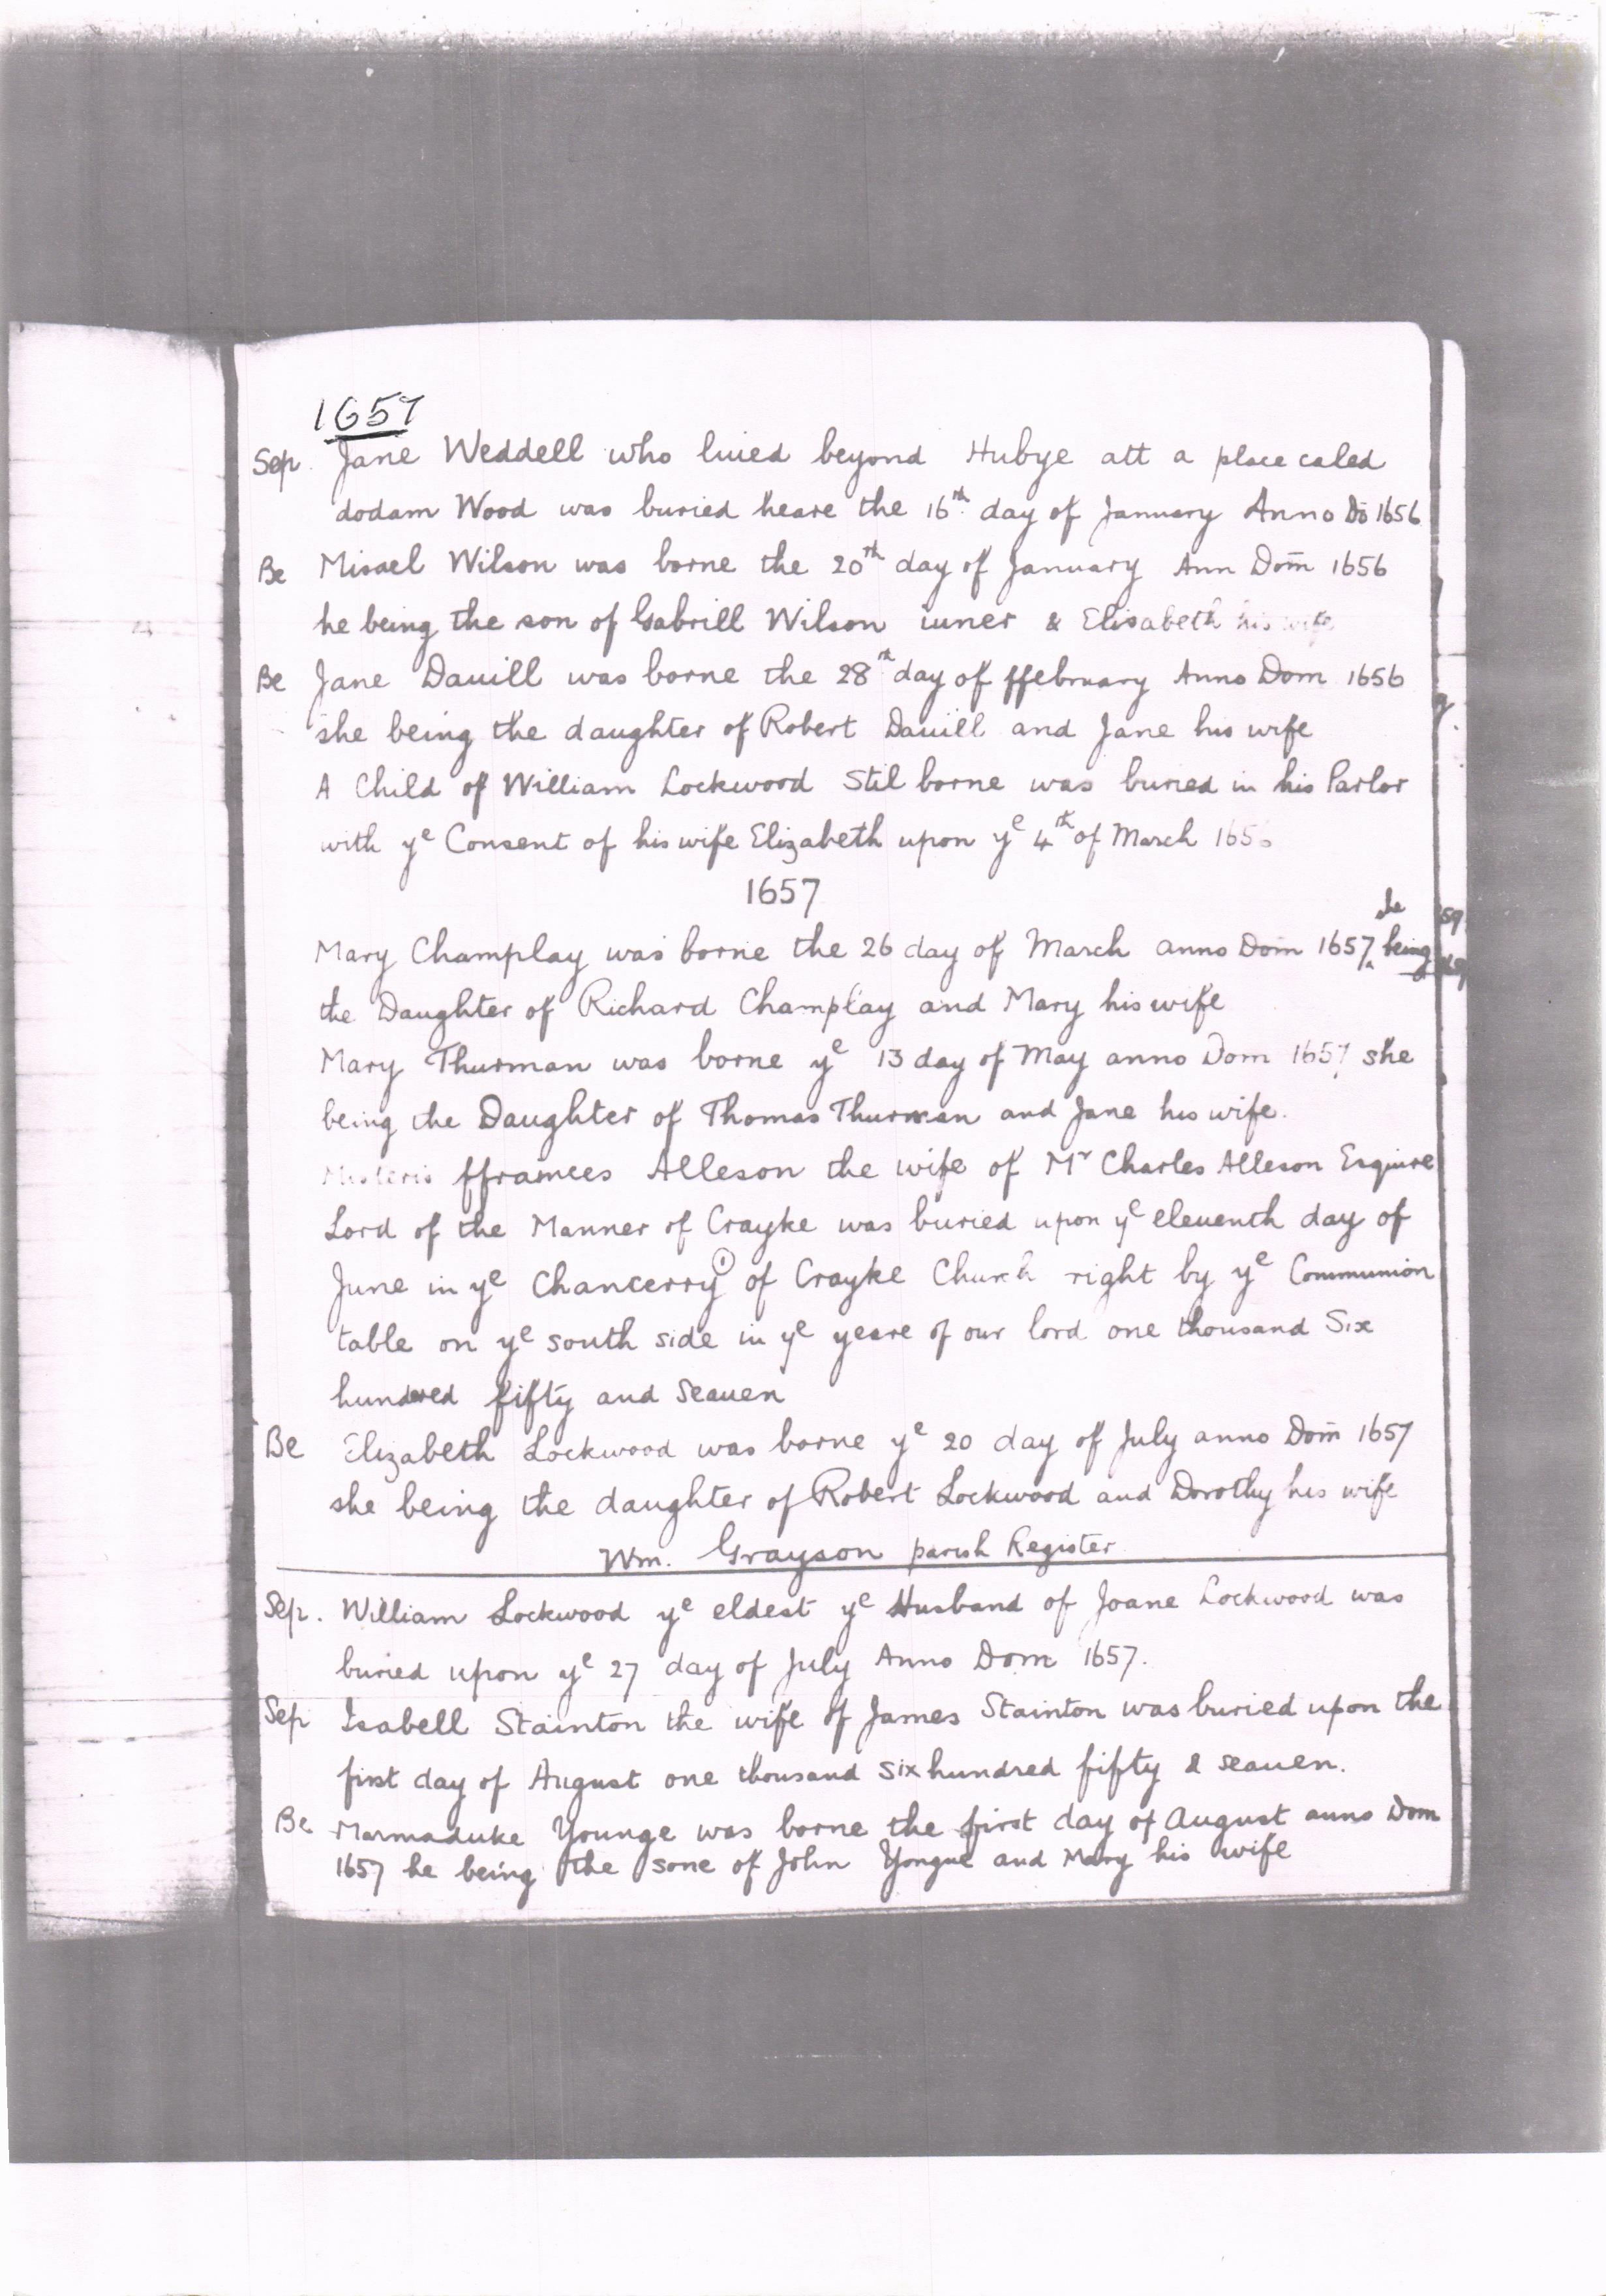 1657
Sep. Jane Weddell who liued beyond Hubye att a place caled
dodam Wood was buried heare the 16th day of January Anno Do 1656
Be Misael Wilson was borne the 20th day of January Ann Dom̄ 1656
he being the son of Gabrill Wilson iuner & Elisabeth his wife
Be Jane Dauill was borne the 28th day of ffebruary Anno Dom 1656
she being the daughter of Robert Dauill and Jane his wife
A Child of William Lockwood Stil borne was buried in his Parlor
with ye Consent of his wife Elizabeth upon ye 4th of March 1656
1657
she
Mary Champlay was borne the 26 day of March anno Dom̄ 1657 being
the Daughter of Richard Champlay and Mary his wife
Mary Thurman was borne ye 13 day of May anno Dom 1657 she
being the Daughter of Thomas Thurman and Jane his wife.
Misteris ffrances Alleson the wife of Mr Charles Alleson Esquire
Lord of the Manner of Crayke was buried upon ye eleuenth day of
June in ye Chancerry ① of Crayke Church right by ye Communion
table on ye south side in ye yeare of our lord one thousand Six
hundred fifty and Seauen
Be Elizabeth Lockwood was borne ye 20 day of July anno Dom̄ 1657
she being the daughter of Robert Lockwood and Dorothy his wife
Wm. Grayson parish Register
Sep. William Lockwood ye eldest ye Husband of Joane Lockwood was
buried upon ye 27 day of July Anno Dom 1657.
Sep Isabell Stainton the wife of James Stainton was buried upon the
first day of August one thousand six hundred fifty & seauen.
Be Marmaduke Younge was borne the first day of August anno Dom
1657 he being the sone of John Yongue and Mary his wife